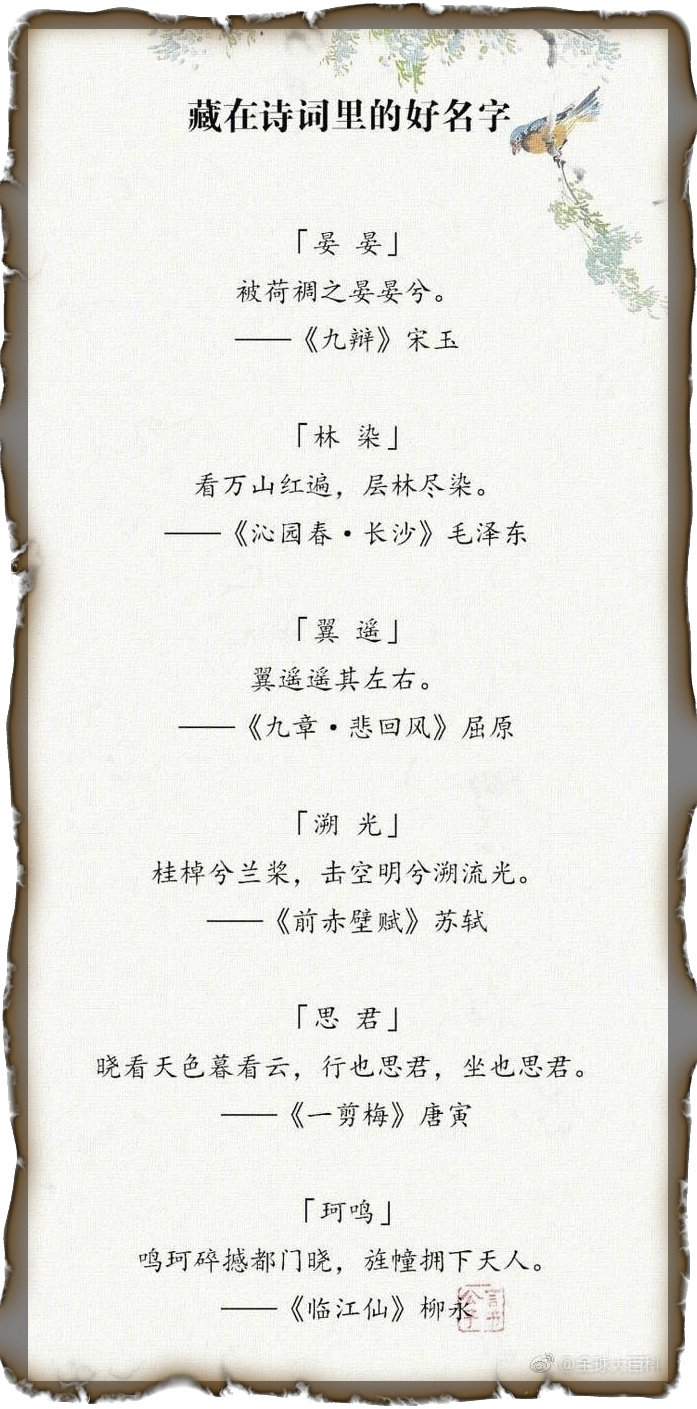 藏在诗词里的好名字
「晏 晏」
被荷裯之晏晏兮。
——《九辩》宋玉
「林 染」
看万山红遍，层林尽染。
——《沁园春·长沙》毛泽东
「翼 遥」
翼遥遥其左右。
——《九章·悲回风》屈原
「溯 光」
桂棹兮兰桨，击空明兮溯流光。
——《前赤壁赋》苏轼
「思 君」
晓看天色暮看云，行也思君，坐也思君。
——《一剪梅》唐寅
「珂鸣」
鸣珂碎撼都门晓，旌幢拥下天人。
——《临江仙》柳永